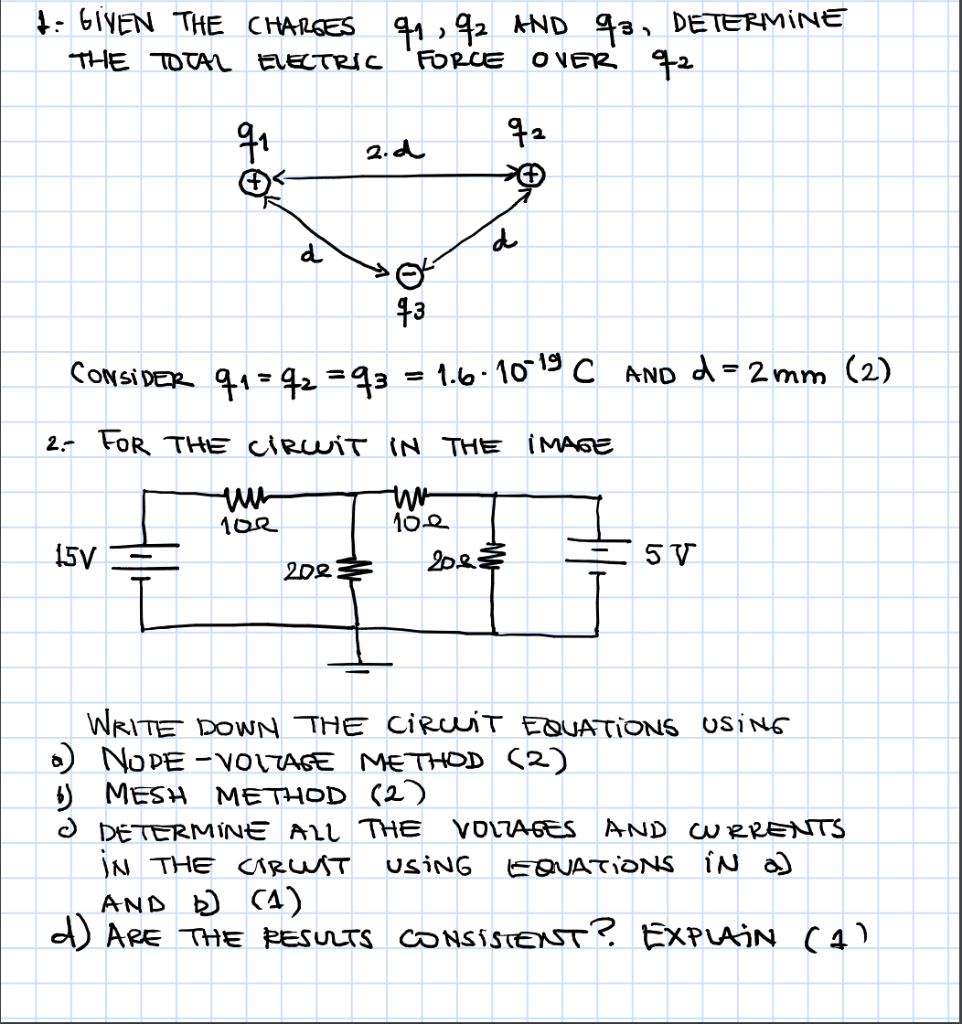 1.- GIVEN THE CHARGES q1, q2 AND q3, DETERMINE
THE TOTAL ELECTRIC FORCE OVER q2
q1
2.d
q2
+
+
d
d
-
q3
CONSIDER q1 = q2 = q3 = 1.6 · 10^-19 C AND d = 2 mm (2)
2.- FOR THE CIRCUIT IN THE IMAGE
10Ω
10Ω
15V
20Ω
20Ω
5V
WRITE DOWN THE CIRCUIT EQUATIONS USING
a) NODE-VOLTAGE METHOD (2)
b) MESH METHOD (2)
c) DETERMINE ALL THE VOLTAGES AND CURRENTS
IN THE CIRCUIT USING EQUATIONS IN a)
AND b) (1)
d) ARE THE RESULTS CONSISTENT? EXPLAIN (1)